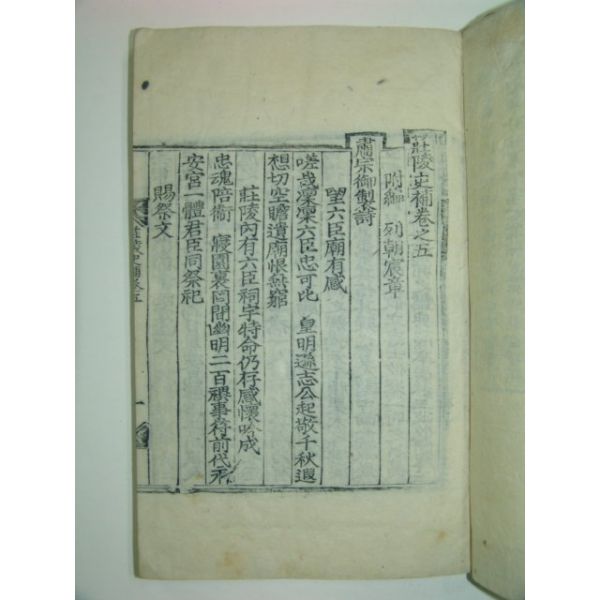 莊陵史補卷之五
附編 列朝宸章
肅宗御製詩
望六臣廟有感
嗟哉凜凜六臣忠可比 皇明遜志公起敬千秋遐
想切空瞻遺廟悵無窮
莊陵內有六臣祠宇特命仍存感懷吟成
忠魂陪衛 寢園裏罔間幽明二百禩事符前代永
安宮一體君臣同祭祀
賜祭文
莊陵史補卷五
一